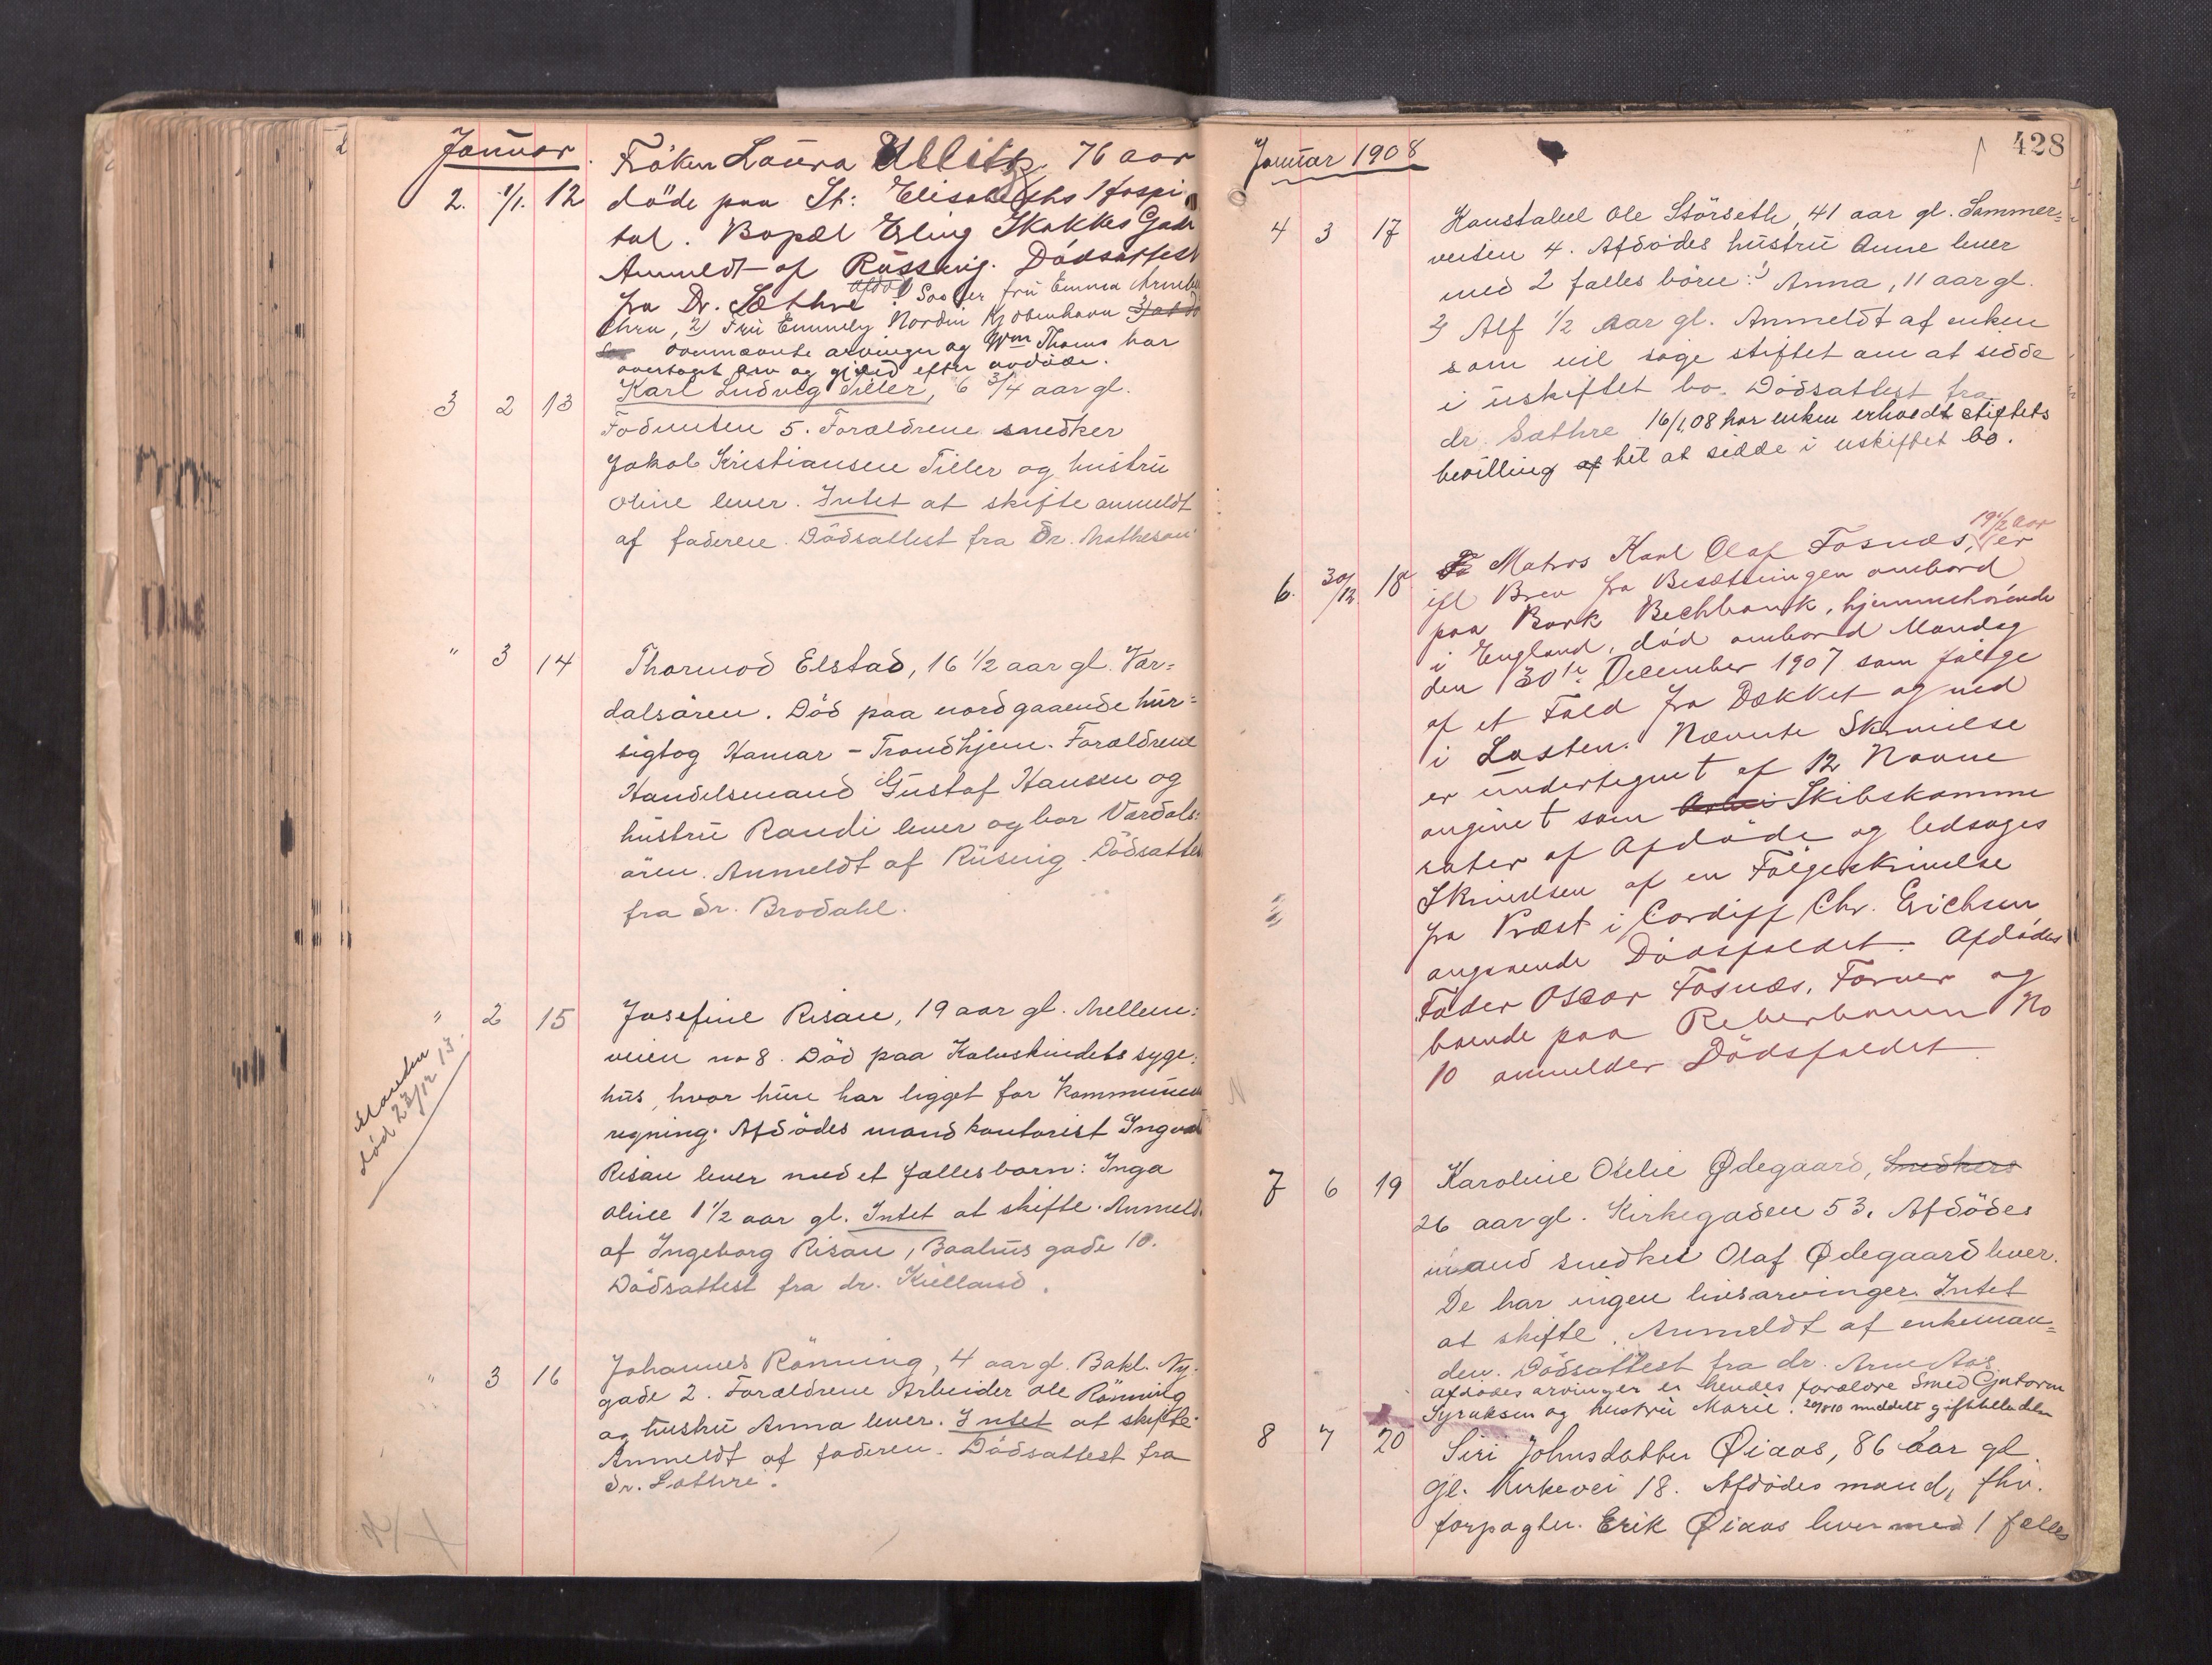 Januar.
2. 1/1. 12 Fröken Laura Ullitz, 76 aar
döde paa St: Elisabeths Hospi
tal. Bopæl Erling Skakkes Gade
Anmeldt af Rüsswig. Dödsattest
fra Dr. Sæthre. Afdøl Søster fru Emma
2) Fru Emmely Nordin Kjöbenhavn
ovennævnte arvinger og Wm Thoms har
overtaget arv og gjæld efter avdöde.
3 2 13 Karl Ludvig Tiller, 6 3/4 aar gl.
5. Forældrene snedker
Jakob Kristiansen Tiller og hustru
Oline lever. Intet at skifte anmeldt
af faderen. Dödsattest fra Dr. Matheson
" 3 14 Thormod Elstad, 16 1/2 aar gl. Vær=
dalsören. Död paa nordgaaende hur=
tigtog Hamar - Trondhjem. Forældrene
Handelsmand Gustaf Hansen og
hustru Randi lever og bor Værdals=
ören. Anmeldt af Rüsnig. Dödsattest
fra dr. Brodahl.
" 2 15 Josefine Risan, 19 aar gl. Mellem=
veien no 8. Död paa Kalvskindets syge=
hus, hvor hun har ligget for Kommunens
regning. Afdödes mand kontorist Ingvald
Risan lever med et fælles barn: Inga
Oline 1 1/2 aar gl. Intet at skifte. Anmeldt
af Ingeborg Risan, Baahus gade 10.
Dödsattest fra dr. Kielland.
Manden
död 23/12 13.
" 3 16 Johannes Rönning, 4 aar gl. Bakl. Ny-
gade 2. Forældrene Arbeider Ole Rönning
og hustru Anna lever. Intet at skifte.
Anmeldt af faderen. Dödsattest fra
dr. Sæthre.
428
Januar 1908
4 3 17 Konstabel Ole Störseth, 41 aar gl. Sommer=
veiten 4. Afdödes hustru Anne lever
med 2 fælles börn: 1) Anna, 11 aar gl.
2) Alf 1/2 aar gl. Anmeldt af enken
som vil söge stiftet om at sidde
i uskiftet bo. Dödsattest fra
dr. Sæthre 16/1 08 har enken erholdt stiftets
bevilling af til at sidde i uskiftet bo.
6. 30/12 18 Matros Karl Olaf Fosnæs, 19 1/2 aar er
ifl Brev fra Besætningen ombord
paa Bark Bechbank, hjemmehörende
i England, död ombord Mandag
den 30te December 1907 som fölge
af et Fald fra Dækket og ned
i Lasten. Nævnte Skrivelse
er undertegnet af 12 Navne
angivet som Skibskamme
rater af Afdöde og ledsages
Skrivelsen af en Fölgeskrivelse
fra Præst i Cardiff Chr. Erichsen
angaaende Dödsfaldet. Afdödes
Fader Oscar Fosnæs, Farver og
boende paa Reberbanen No
10 anmelder Dödsfaldet.
7 6 19 Karoline Otelie Ødegaard, Snedkers
26 aar gl. Kirkegaden 53. Afdödes
mand snedker Olaf Ødegaard lever.
De har ingen livsarvinger. Intet
at skifte. Anmeldt af enkeman=
den. Dödsattest fra dr. Arne Aas
Afdödes arvinger er hendes forældre Smed Guttorm
Syraksen og hustru Marie. 20/9 10 meddelt giftetilladelse
8 7 20 Siri Johnsdatter Øiaas, 86 aar gl.
gl. Kirkevei 18. Afdödes mand, fhv.
forpagter Erik Øiaas lever med 1 fælles